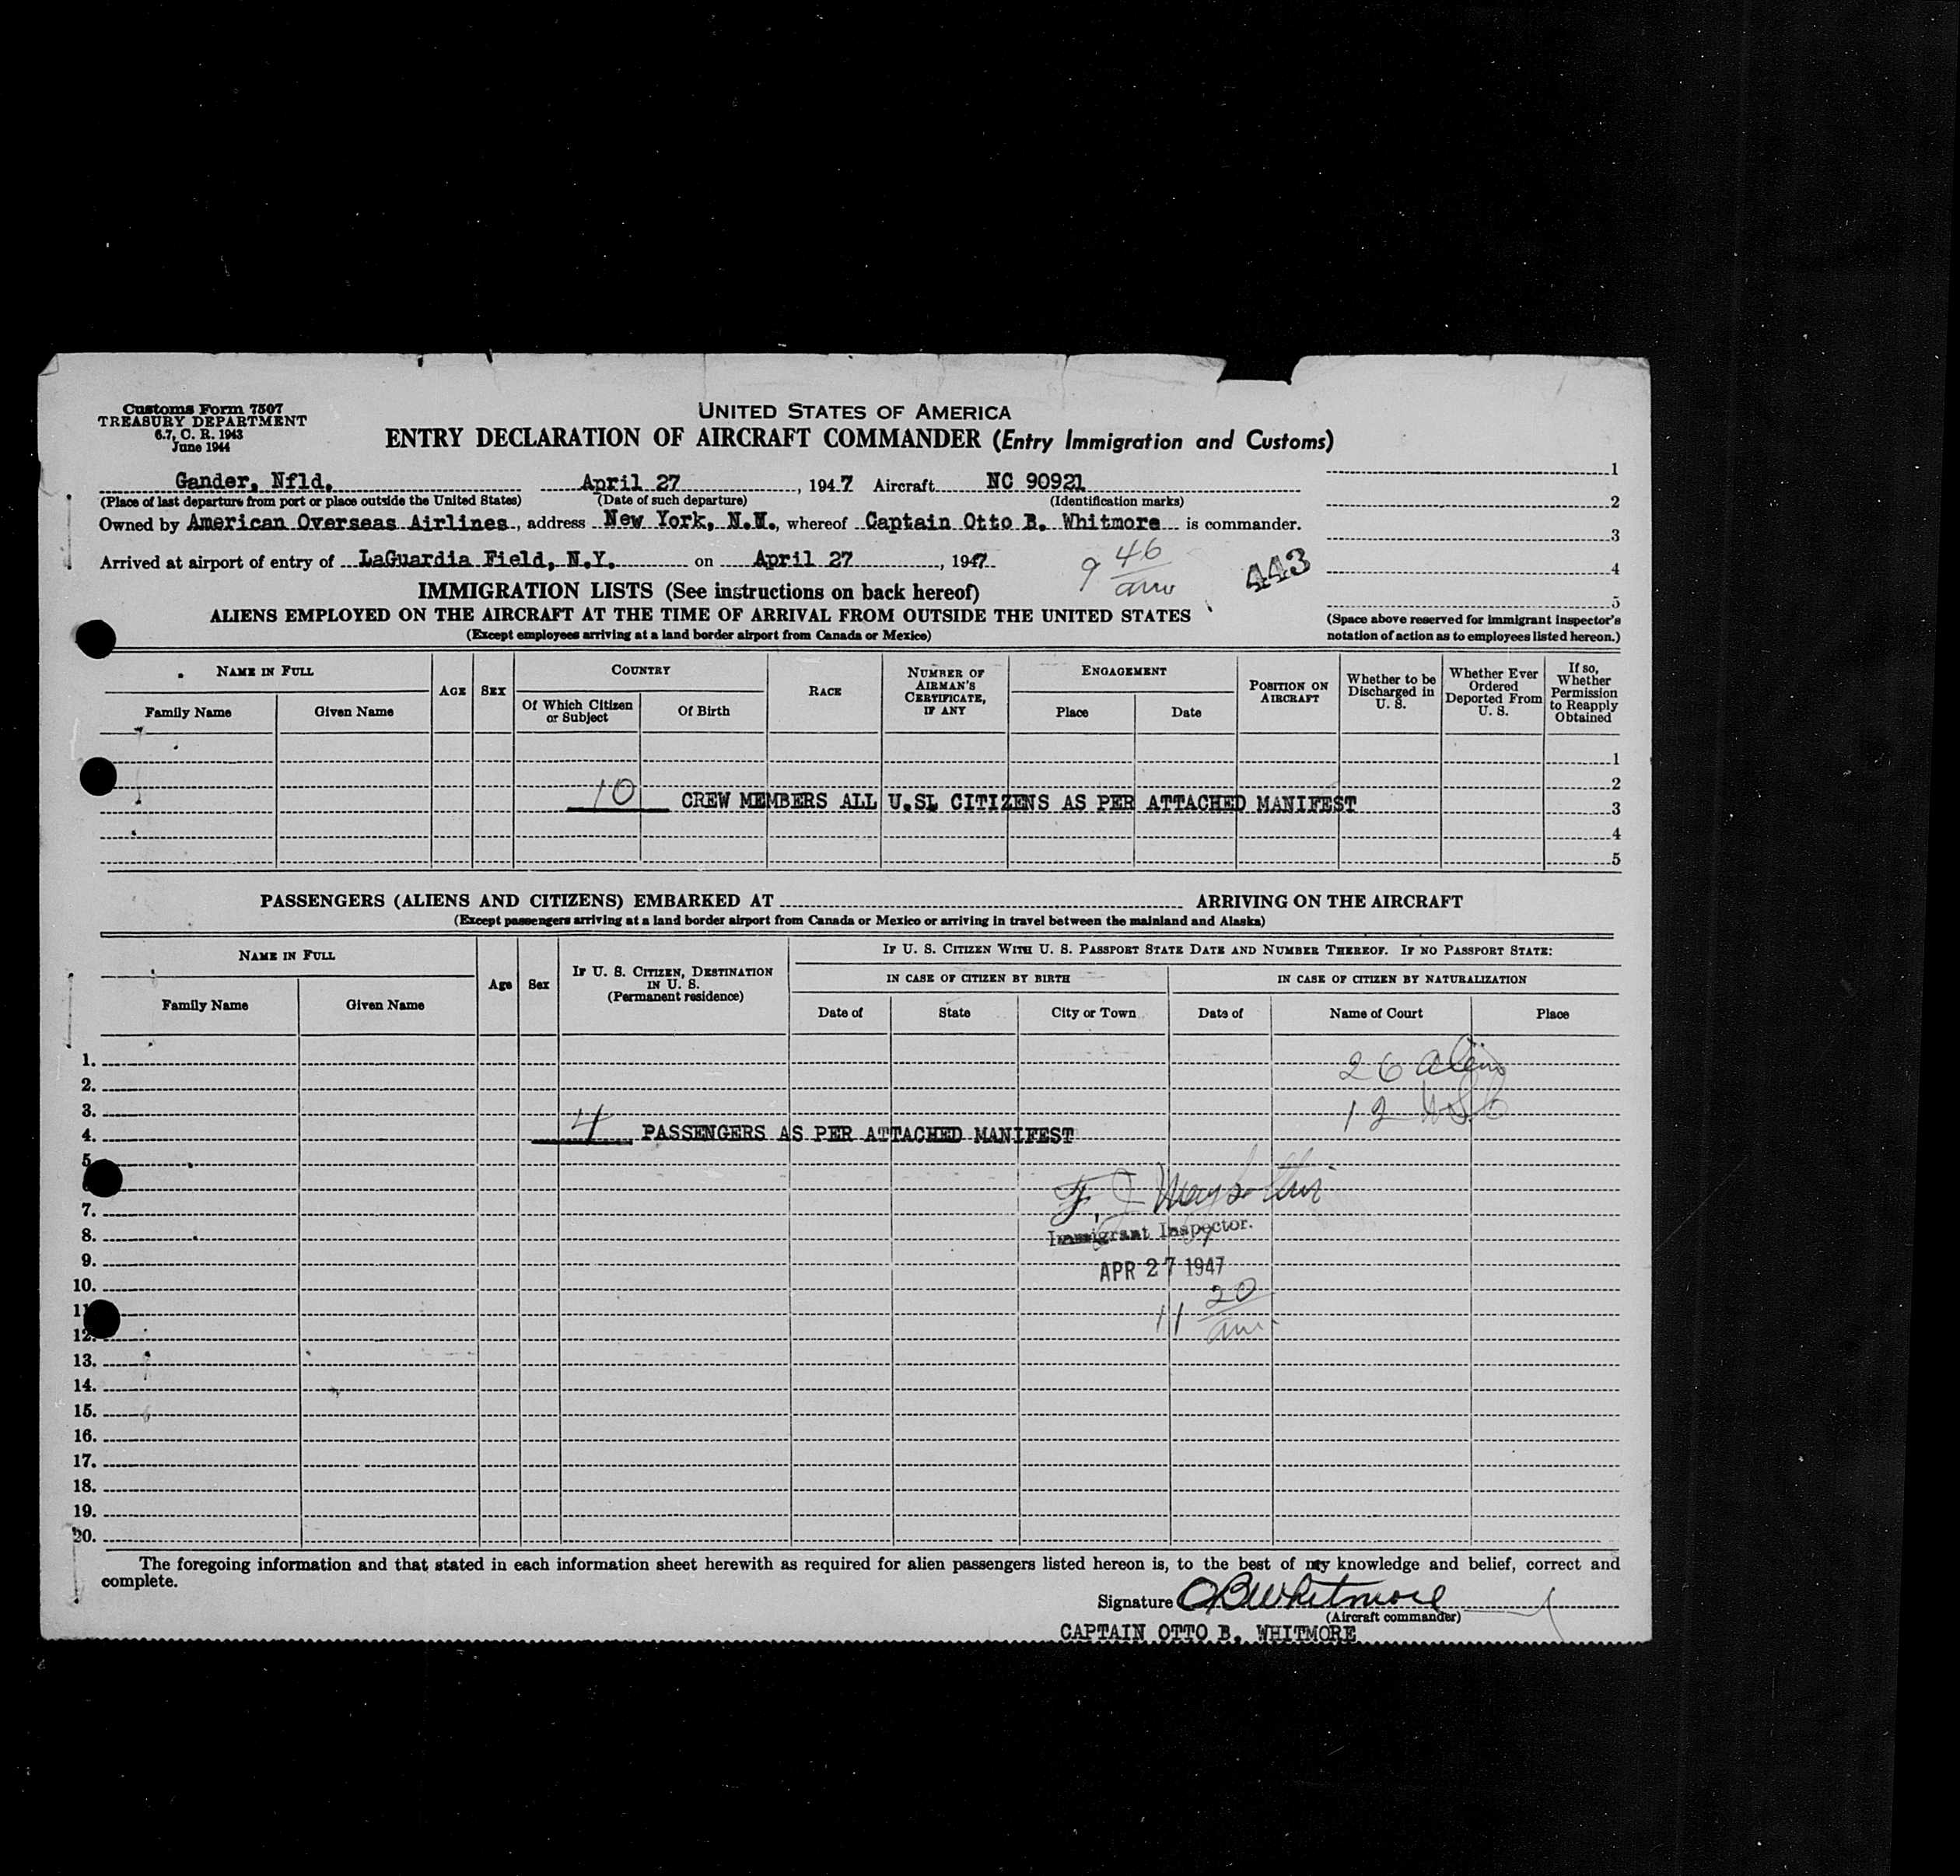 Customs Form 7507
TREASURY DEPARTMENT
6.7, C. R. 1943
June 1944
UNITED STATES OF AMERICA
ENTRY DECLARATION OF AIRCRAFT COMMANDER (Entry Immigration and Customs)
Gander, Nfld. April 27, 1947 Aircraft NC 90921
(Place of last departure from port or place outside the United States) (Date of such departure) (Identification marks)
Owned by American Overseas Airlines, address New York, N.Y., whereof Captain Otto B. Whitmore is commander.
Arrived at airport of entry of LaGuardia Field, N.Y. on April 27, 1947
9 46 am
443
1
2
3
4
5
(Space above reserved for immigrant inspector's
notation of action as to employees listed hereon.)
IMMIGRATION LISTS (See instructions on back hereof)
ALIENS EMPLOYED ON THE AIRCRAFT AT THE TIME OF ARRIVAL FROM OUTSIDE THE UNITED STATES
(Except employees arriving at a land border airport from Canada or Mexico)
NAME IN FULL
Family Name Given Name
AGE
SEX
COUNTRY
Of Which Citizen or Subject
Of Birth
RACE
NUMBER OF AIRMAN'S CERTIFICATE, IF ANY
ENGAGEMENT
Place Date
POSITION ON AIRCRAFT
Whether to be Discharged in U. S.
Whether Ever Ordered Deported From U. S.
If so, Whether Permission to Reapply Obtained
1
2
10 CREW MEMBERS ALL U.SL CITIZENS AS PER ATTACHED MANIFEST
3
4
5
PASSENGERS (ALIENS AND CITIZENS) EMBARKED AT ARRIVING ON THE AIRCRAFT
(Except passengers arriving at a land border airport from Canada or Mexico or arriving in travel between the mainland and Alaska)
NAME IN FULL
Family Name Given Name
Age
Sex
IF U. S. CITIZEN, DESTINATION IN U. S.
(Permanent residence)
IF U. S. CITIZEN WITH U. S. PASSPORT STATE DATE AND NUMBER THEREOF. IF NO PASSPORT STATE:
IN CASE OF CITIZEN BY BIRTH
Date of State City or Town
IN CASE OF CITIZEN BY NATURALIZATION
Date of Name of Court Place
1. 26
2.
3. 12
4. 4 PASSENGERS AS PER ATTACHED MANIFEST
5.
7. F. J.
8. Immigrant Inspector.
9. APR 27 1947
10.
11 20 am
12.
13.
14.
15.
16.
17.
18.
19.
20.
The foregoing information and that stated in each information sheet herewith as required for alien passengers listed hereon is, to the best of my knowledge and belief, correct and
complete.
Signature O B Whitmore
(Aircraft commander)
CAPTAIN OTTO B. WHITMORE